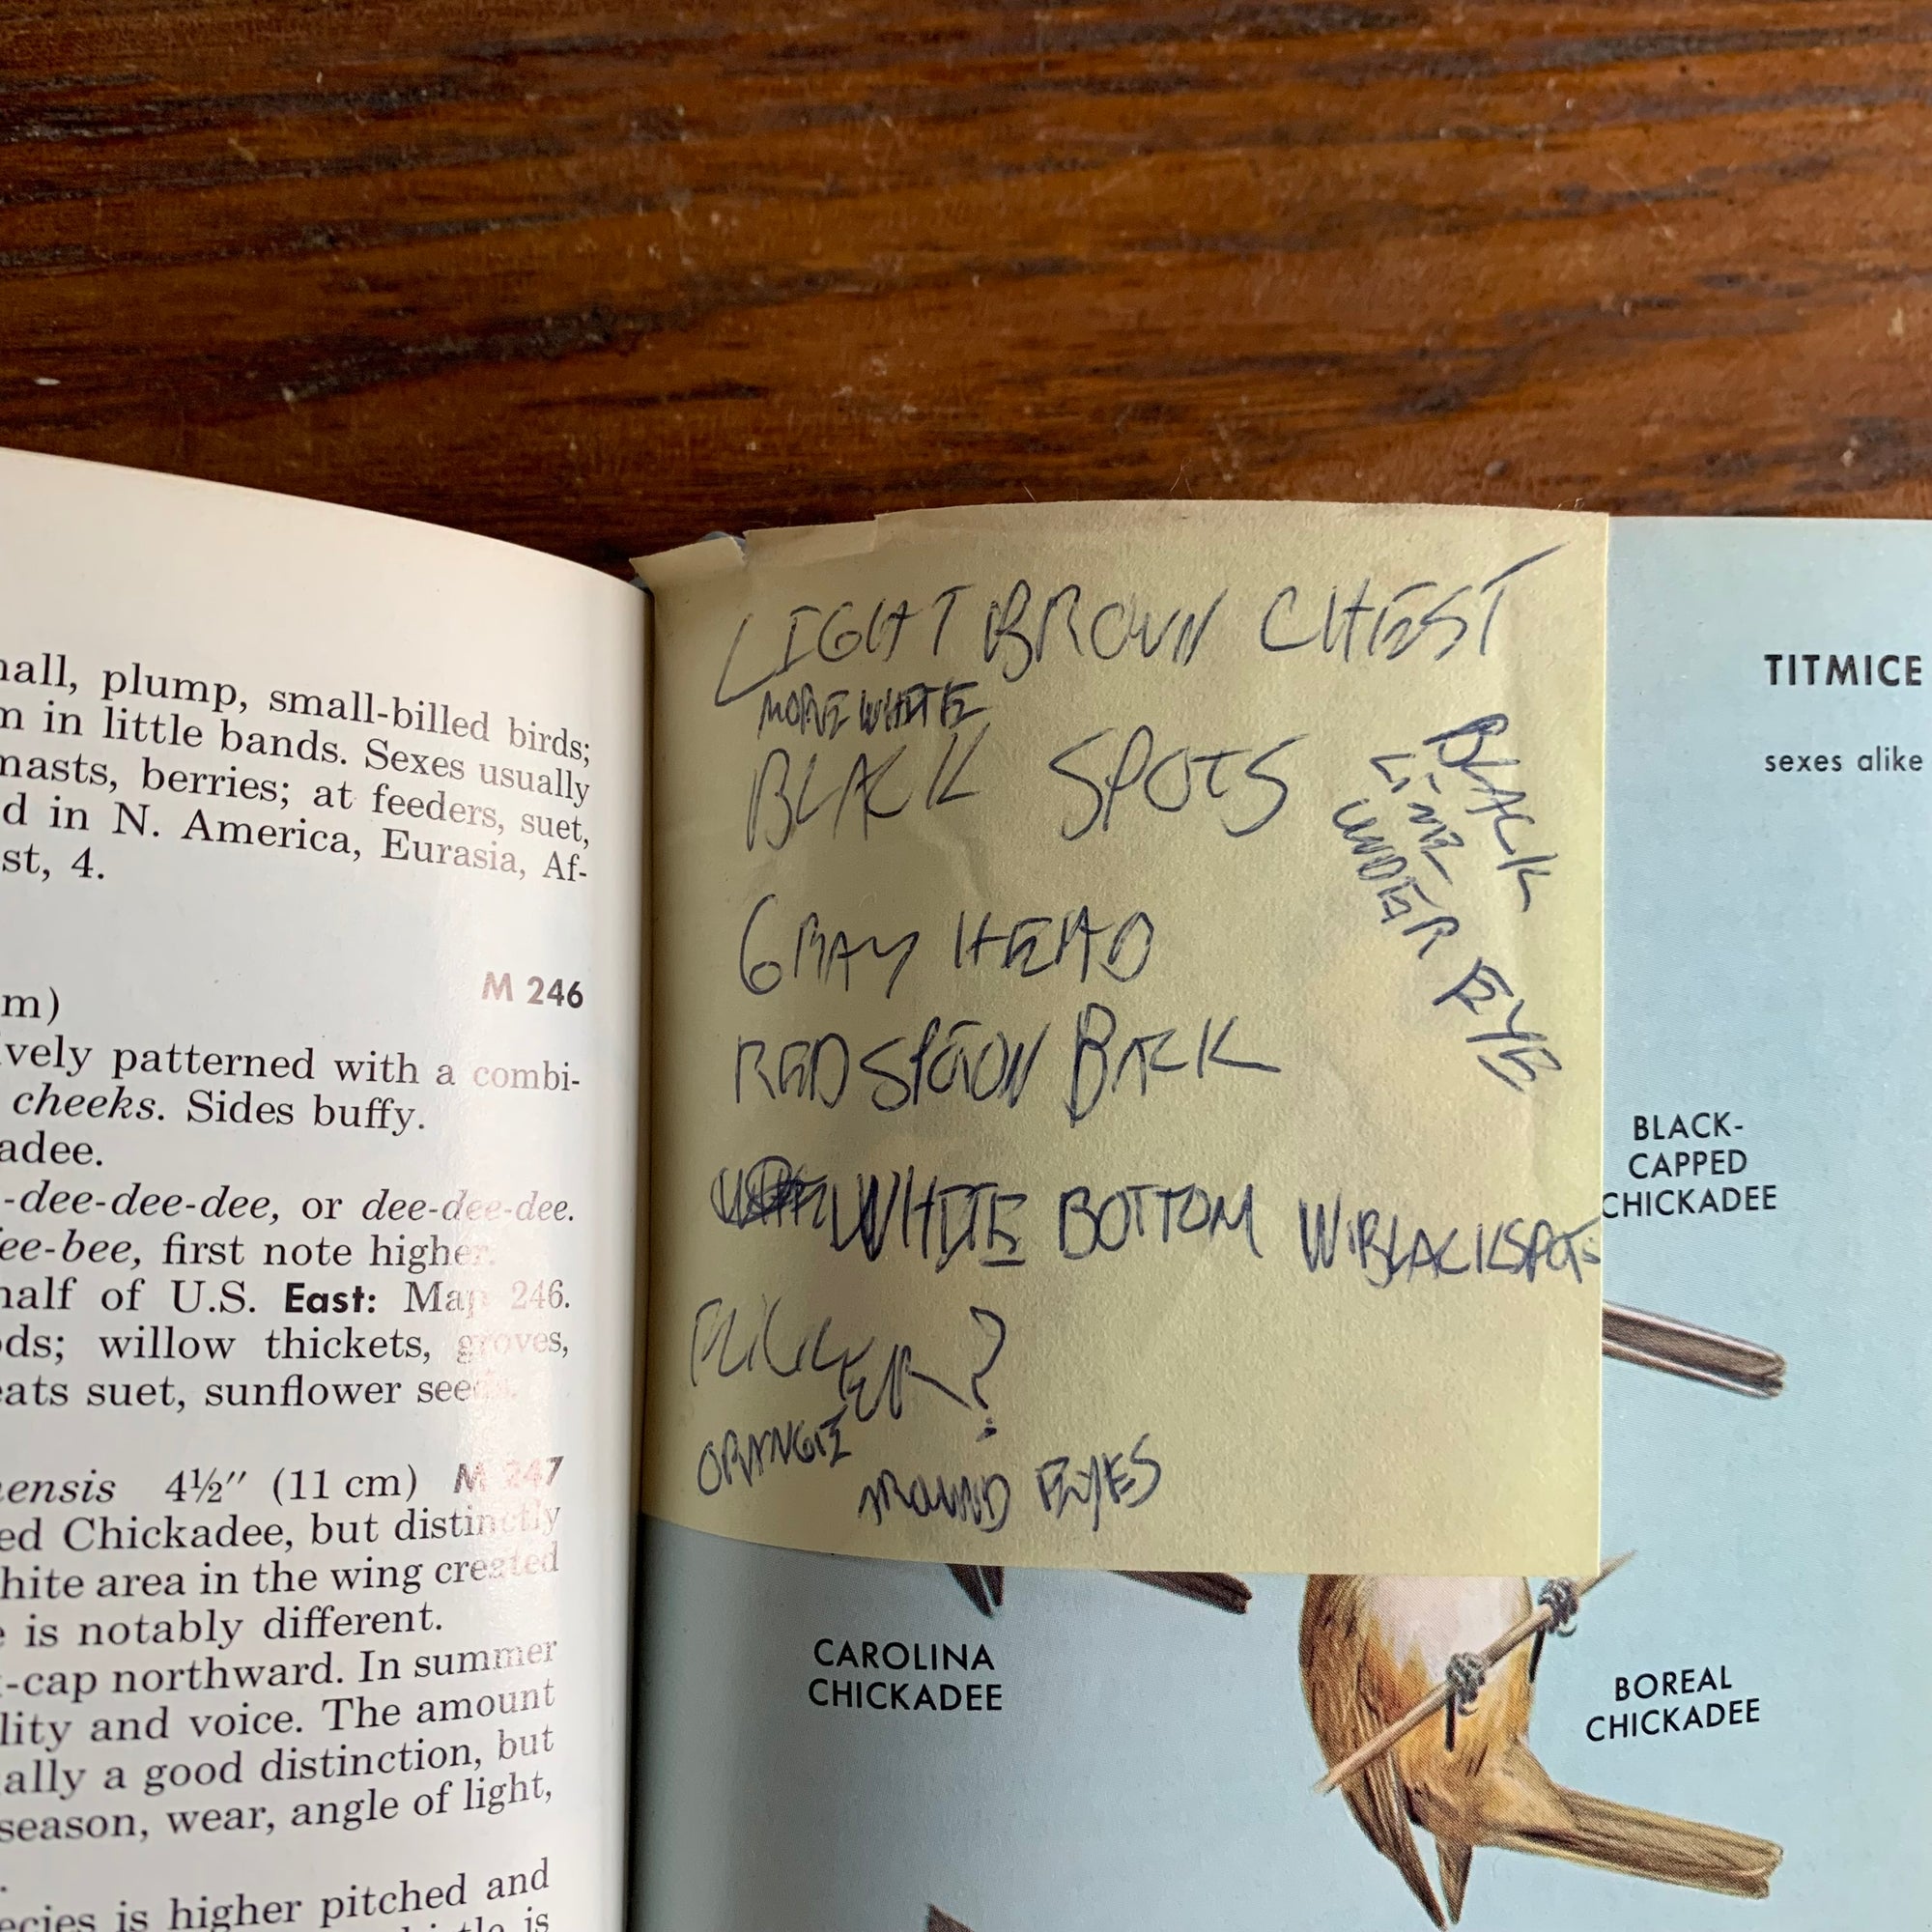 all, plump, small-billed birds;
in little bands. Sexes usually
masts, berries; at feeders, suet,
d in N. America, Eurasia, Af-
st, 4.
M 246
m)
vely patterned with a combi-
cheeks. Sides buffy.
adee.
-dee-dee-dee, or dee-dee-dee.
ee-bee, first note higher.
half of U.S. East: Map 246.
ds; willow thickets, groves,
eats suet, sunflower see
ensis 4½" (11 cm) M 247
ed Chickadee, but distinctly
hite area in the wing created
e is notably different.
-cap northward. In summer
lity and voice. The amount
ally a good distinction, but
season, wear, angle of light,
ecies is higher pitched and
is
LIGHT BROWN CHEST
MORE WHITE
BLACK SPOTS
BLACK
LINE
UNDER EYE
GRAY HEAD
RED SPOT ON BACK
WHITE BOTTOM W/BLACK SPOTS
FLICKER?
ORANGE
AROUND EYES
TITMICE
sexes alike
BLACK-
CAPPED
CHICKADEE
CAROLINA
CHICKADEE
BOREAL
CHICKADEE